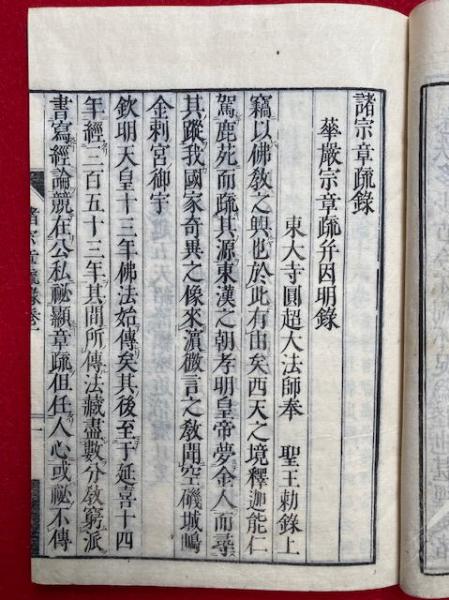 諸宗章疏錄
華嚴宗章疏并因明錄
東大寺圓超大法師奉　聖王勅錄上
竊以佛敎之興也於此有由矣西天之境釋迦能仁
駕鹿苑而疏其源東漢之朝孝明皇帝夢金人而尋
其蹤我國家奇異之像來濱微言之敎聞空磯城嶋
金刺宮御宇
欽明天皇十三年佛法始傳矣其後至于延喜十四
年經三百五十三年其間所傳法藏盡數分敎窮派
書寫經論競在公私祕顯章疏但任人心或祕不傳
諸宗章疏錄卷一